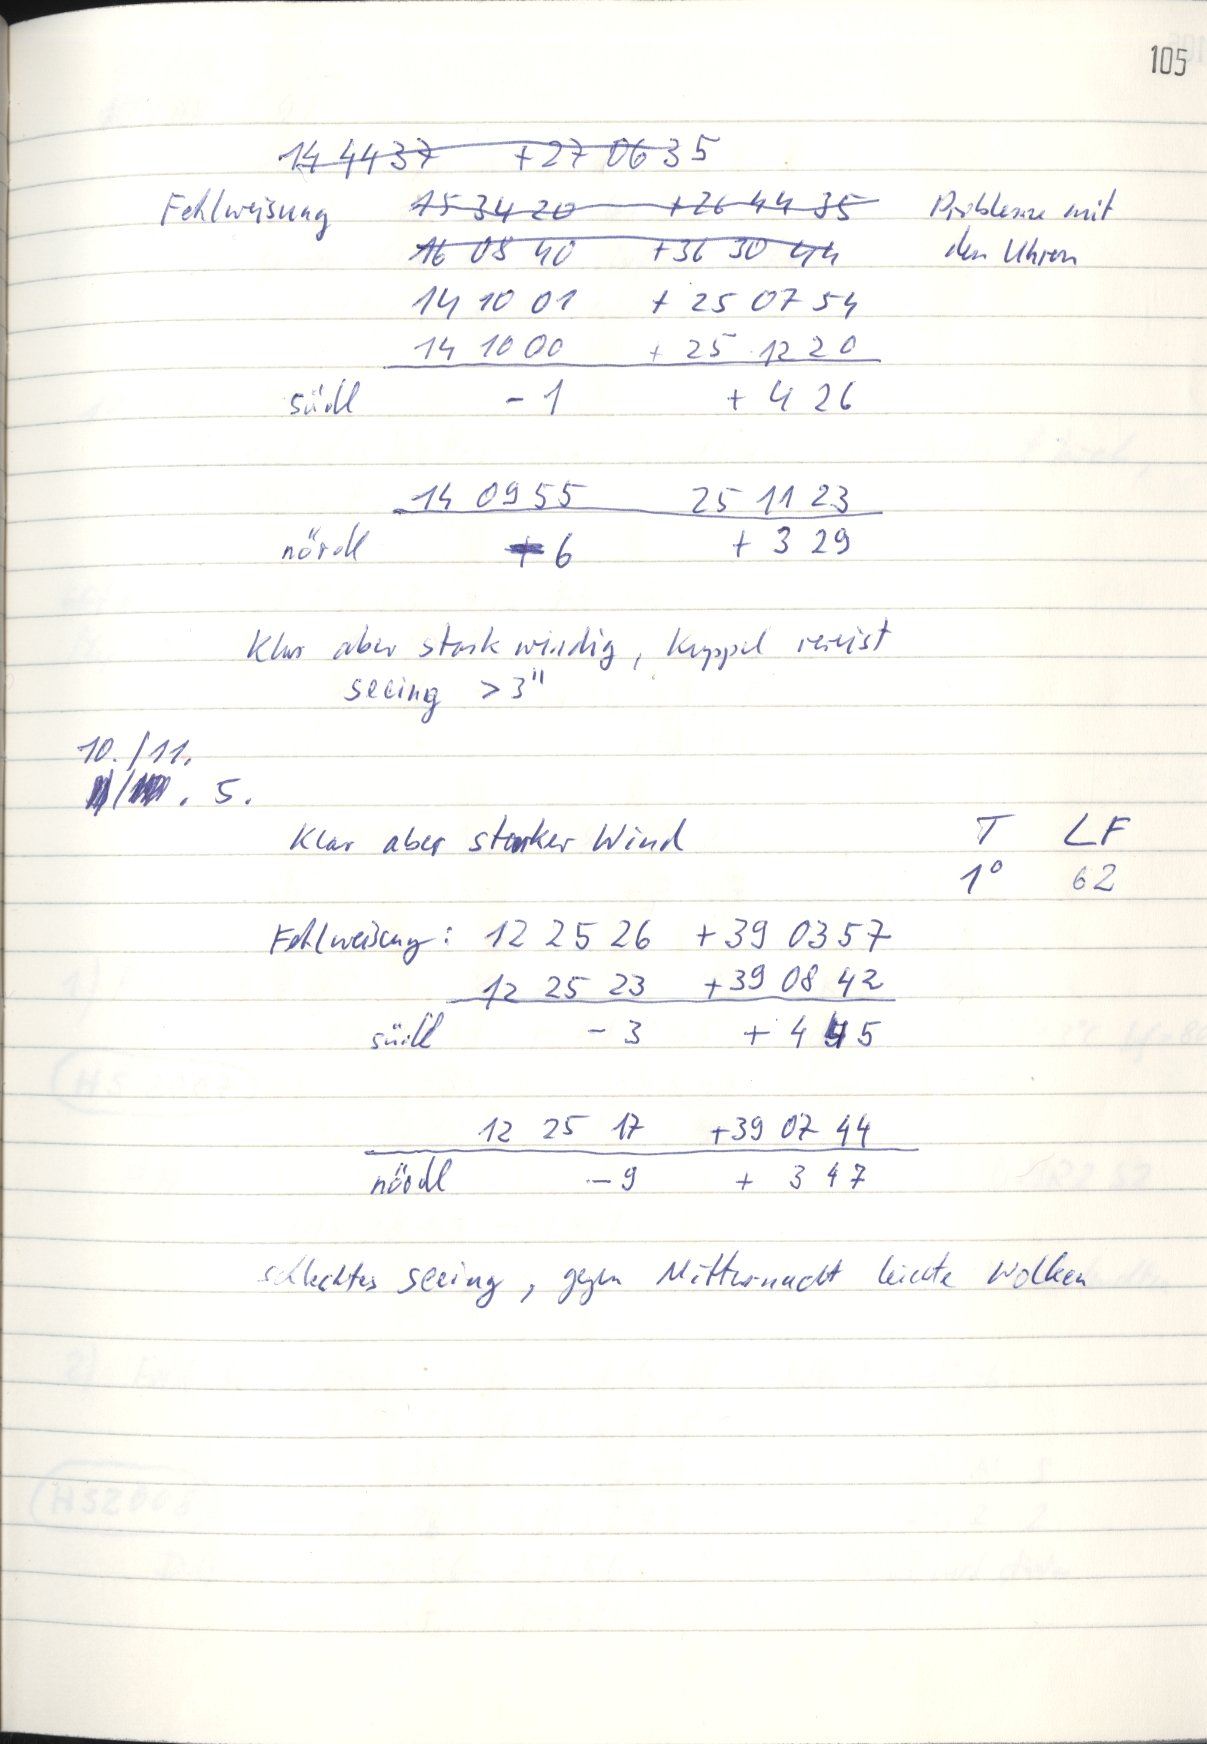 105
14 44 37 +27 06 35
Fehlweisung 15 34 20 +26 44 35 Probleme mit
16 08 40 +36 30 44 den Uhren
14 10 01 + 25 07 54
14 10 00 + 25 12 20
südl - 1 + 4 26
14 09 55 25 11 23
nördl 6 + 3 29
Klar aber stark windig, Kuppel vereist
seeing > 3"
10./11.
. 5.
Klar aber starker Wind T LF
1° 62
Fehlweisung: 12 25 26 +39 03 57
12 25 23 +39 08 42
südl - 3 + 4 45
12 25 17 +39 07 44
nördl - 9 + 3 47
schlechtes seeing, gegen Mitternacht leichte Wolken